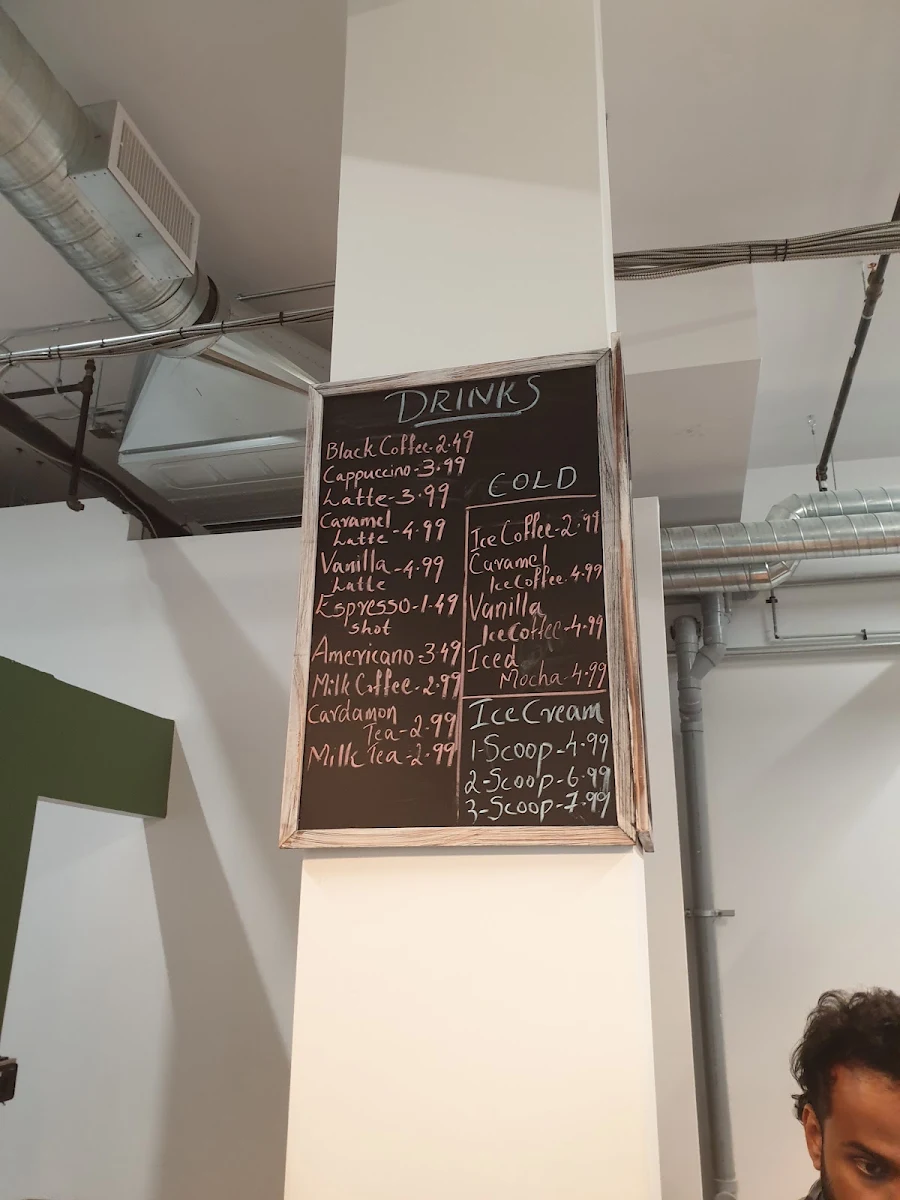 DRINKS
Black Coffee-2.49
Cappuccino-3.99
Latte-3.99
Caramel
Latte-4.99
Vanilla-4.99
Latte
Espresso-1.49
shot
Americano-3.49
Milk Coffee-2.99
Cardamon
Tea-2.99
Milk Tea-2.99
COLD
Ice Coffee-2.99
Caramel
Ice Coffee-4.99
Vanilla
Ice Coffee-4.99
Iced
Mocha-4.99
Ice Cream
1-Scoop-4.99
2-Scoop-6.99
3-Scoop-7.99